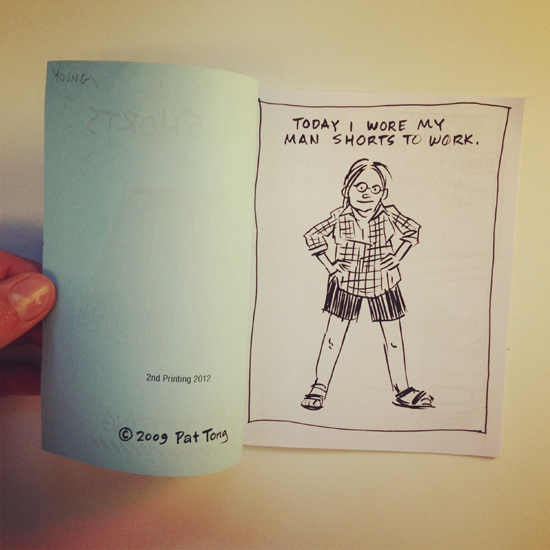 YOUNG
2nd Printing 2012
© 2009 Pat Tong
TODAY I WORE MY
MAN SHORTS TO WORK.